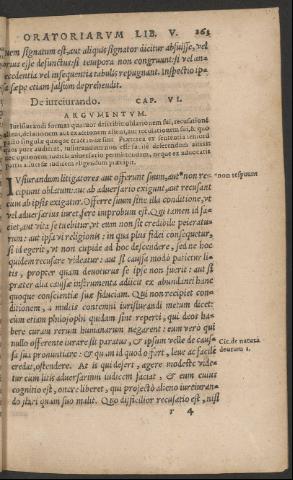 ORATORIARVM LIB. V. 263
quem signatum est, aut aliquis signator dicitur abfuisse, vel
prius esse defunctus: si tempora non congruunt: si vel an-
tecedentia vel insequentia tabulis repugnant. Inspectio ip-
sa sæpe etiam falsum deprehendit.
De iureiurando. CAP. VI.
ARGVMENTVM.
Iurisiurandi formas quatuor describit: oblationem sui, recusationē
IVsiurandum litigatores aut offerunt suum, aut* non re-
non respuunt
cipiunt oblatum: aut ab adversario exigunt, aut recusant
cum ab ipsis exigatur. Offerre suum sine illa conditione, vt
vel adversarius iuret, ferè improbum est. Qui tamen id fa-
ciet, aut vita se tuebitur, vt eum non sit credibile peieratu-
rum: aut ipsa vi religionis: in qua plus fidei consequetur,
si id egerit, vt non cupide ad hoc descendere, sed ne hoc
quidem recusare videatur: aut si caussæ modo patietur li-
tis, propter quam devoturus se ipse non fuerit: aut si
præter alia caussæ instrumenta adiicit ex abundanti hanc
quoque conscientiæ suæ fiduciam. Qui non recipiet con-
ditionem, a multis contemni iurisiurandi metum dicet:
cùm etiam philosophi quidam sint reperti, qui deos ha-
bere curam rerum humanarum negarent: eum vero qui
nullo offerente iurare sit paratus, & ipsum velle de caus-
sa sua pronuntiare: & quam id quod offert, leve ac facile
Cic. de natura
deorum 1.
credat, ostendere. At is qui defert, agere modeste vide-
tur cum litis adversarium iudicem faciat, & eum cuius
cognitio est, onere liberet, qui profectò alieno iureiuran-
do stari quam suo malit. Quo difficilior recusatio est, nisi
r 4